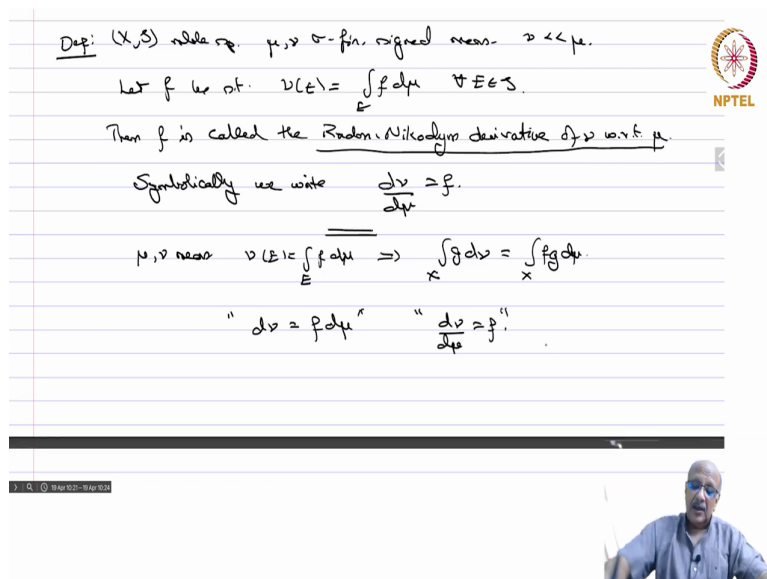 Def: (X, S) mble sp. μ, ν σ-fin. signed meas. ν << μ.
Let f be s.t. ν(E) = ∫_E f dμ ∀ E ∈ S.
NPTEL
Then f is called the Radon-Nikodym derivative of ν w.r.t. μ.
Symbolically we write dν/dμ = f.
μ, ν meas ν(E) = ∫_E f dμ ⇒ ∫_X g dν = ∫_X fg dμ.
" dν = f dμ " " dν/dμ = f ".
19 Apr 10:21 - 19 Apr 10:24